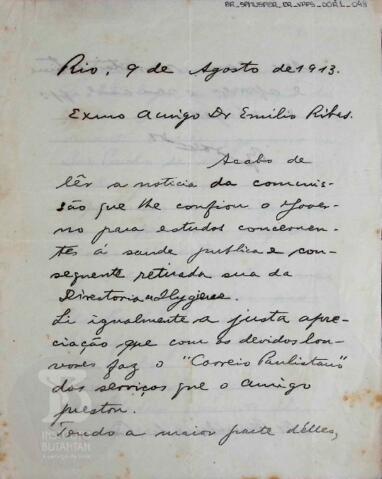 BR_SPMUSPER_ER_VPPS_DOR.L_049
Rio, 9 de Agosto de 1913.
Exmo Amigo Dr Emilio Ribas.
Acabo de
lêr a noticia da commis-
são que lhe confiou o Gover-
no para estudos concernen-
tes á saude publica e con-
sequente retirada sua da
Directoria d'Hygiene.
Li igualmente a justa apre-
ciação que com os devidos lou-
vores faz o "Correio Paulistano"
dos serviços que o amigo
prestou.
Tendo a maior parte délles,
INSTITUTO
BUTANTAN
A serviço da vida